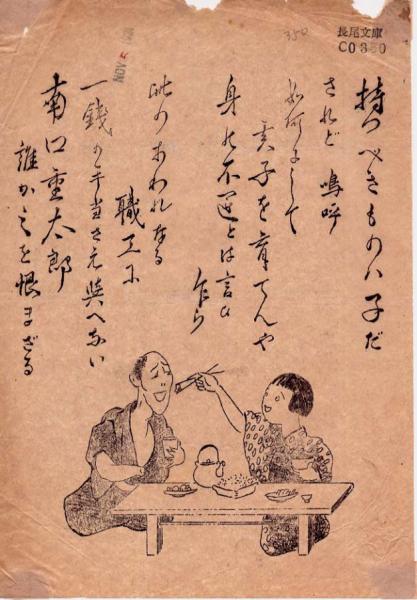 長尾文庫
C0350
350
NOV
持つべきものハ子だ
されど 嗚呼
如何にして
子を育てんや
身の不運とは言ひ
乍ら
此のあわれなる
職工に
一銭の手当さえ與へない
南口重太郎
誰か之を恨まざる